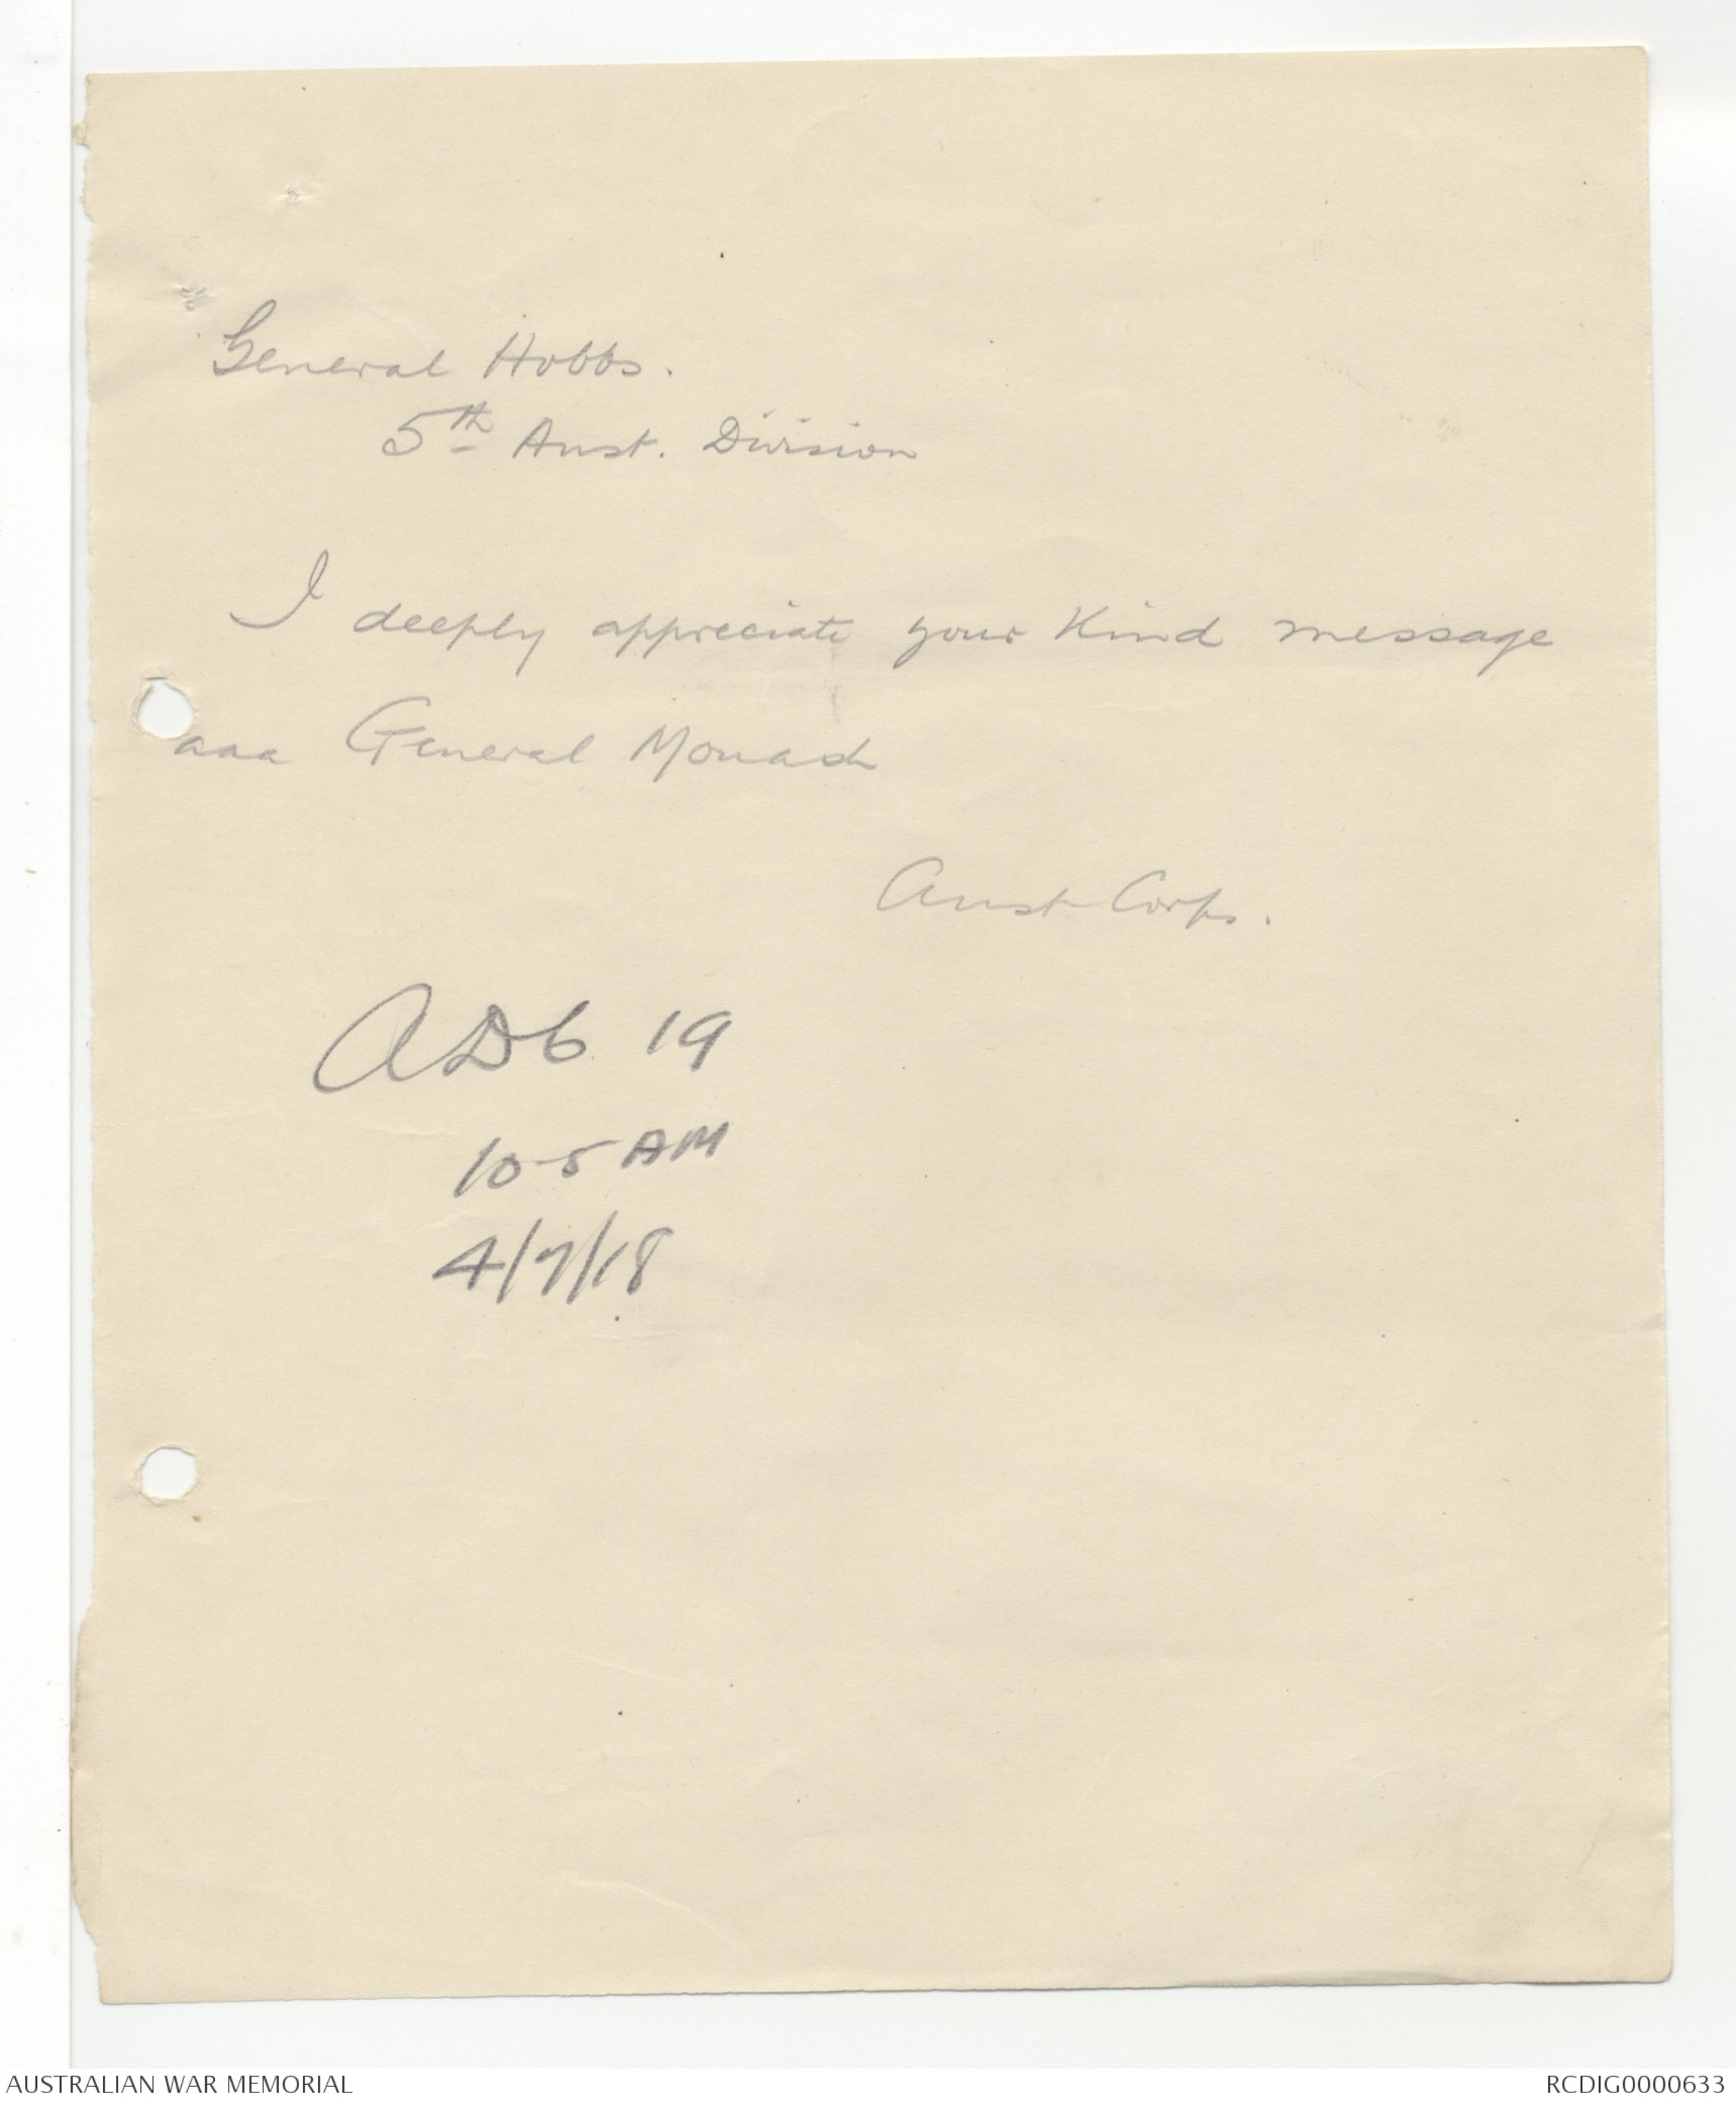 General Hobbs.
5th Aust. Division
I deeply appreciate your Kind message
aaa General Monash
Aust Corps.
ADb 19
10-5 AM
4/7/18
AUSTRALIAN WAR MEMORIAL
RCDIG0000633